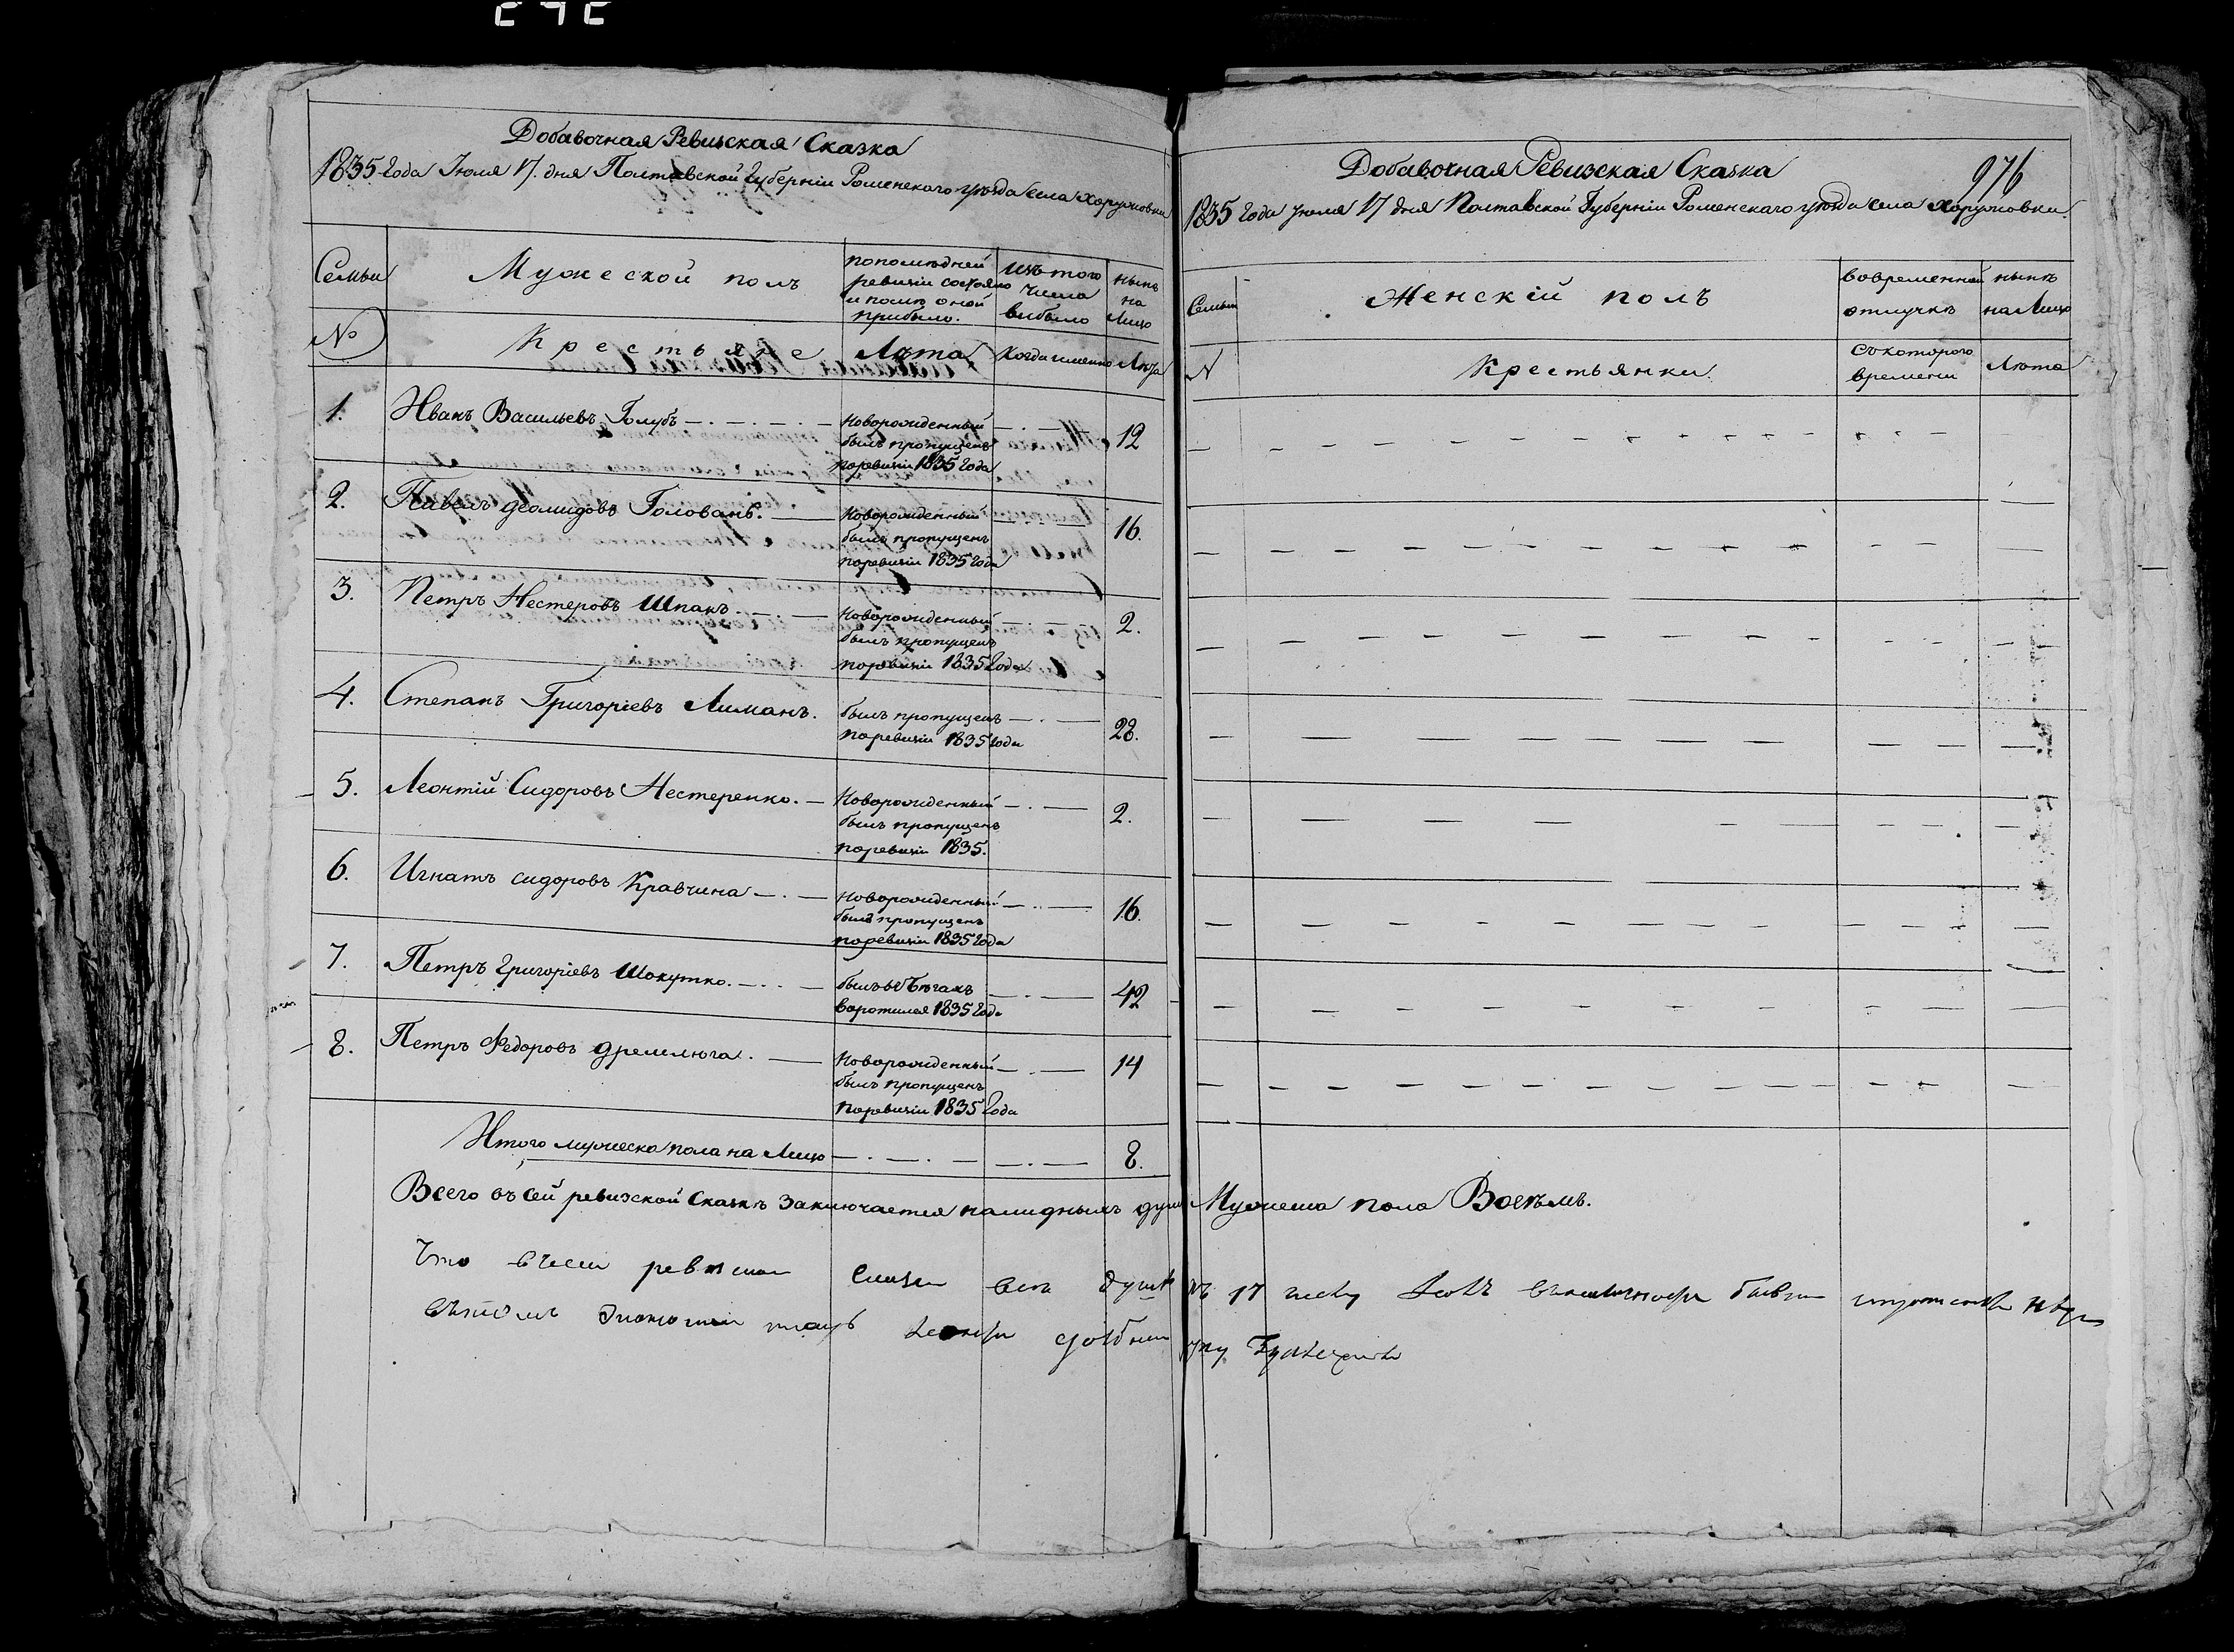 Добавочная Ревизская Сказка
1835 года Іюля 17. дня Полтавской Губерніи Роменского уѣзда села Хоружовки
Семьи
Мужеской полъ
по последней
ревизіи состояло
и после оной
прибыло.
изъ того
числа
выбыло
нынѣ
на
Лицо
№
Крестьяне
Лѣта
Когда именно
Лѣта
1.
Иванъ Васильевъ Голубъ
Новорожденный
былъ пропущенъ
поревизіи 1835 года
12
2.
Павелъ Деомидовъ Головань.
Новорожденный
былъ пропущенъ
поревизіи 1835 года
16.
3.
Петръ Нестеровъ Шпакъ.
Новорожденный
былъ пропущенъ
поревизіи 1835 года
2.
4.
Степанъ Григоріевъ Лиманъ.
былъ пропущенъ
поревизіи 1835 года
28.
5.
Леонтій Сидоровъ Нестеренко.
Новорожденный
былъ пропущенъ
поревизіи 1835.
2.
6.
Игнатъ Сидоровъ Кравчина
Новорожденный
былъ пропущенъ
поревизіи 1835 года
16.
7.
Петръ Григоріевъ Шокутко.
былъ въ бѣгахъ
воротился 1835 года
42
8.
Петръ Федоровъ Дремлюга.
Новорожденный
былъ пропущенъ
поревизіи 1835 года
14
Итого мужеска пола на Лицо
8.
Всего въ сей ревизской Сказкѣ заключается налицныхъ душъ
Что всеи ревизкои все душъ
976
Добавочная Ревизская Сказка
1835 года Іюля 17 дня Полтавской Губерніи Роменскаго уѣзда села Хоружовки.
Семьи
Женскій полъ
вовременной
отлучкѣ
нынѣ
на Лицо
N
Крестьянки.
съ котораго
времени
Лѣта
Мужеска пола Восѣмъ.
17